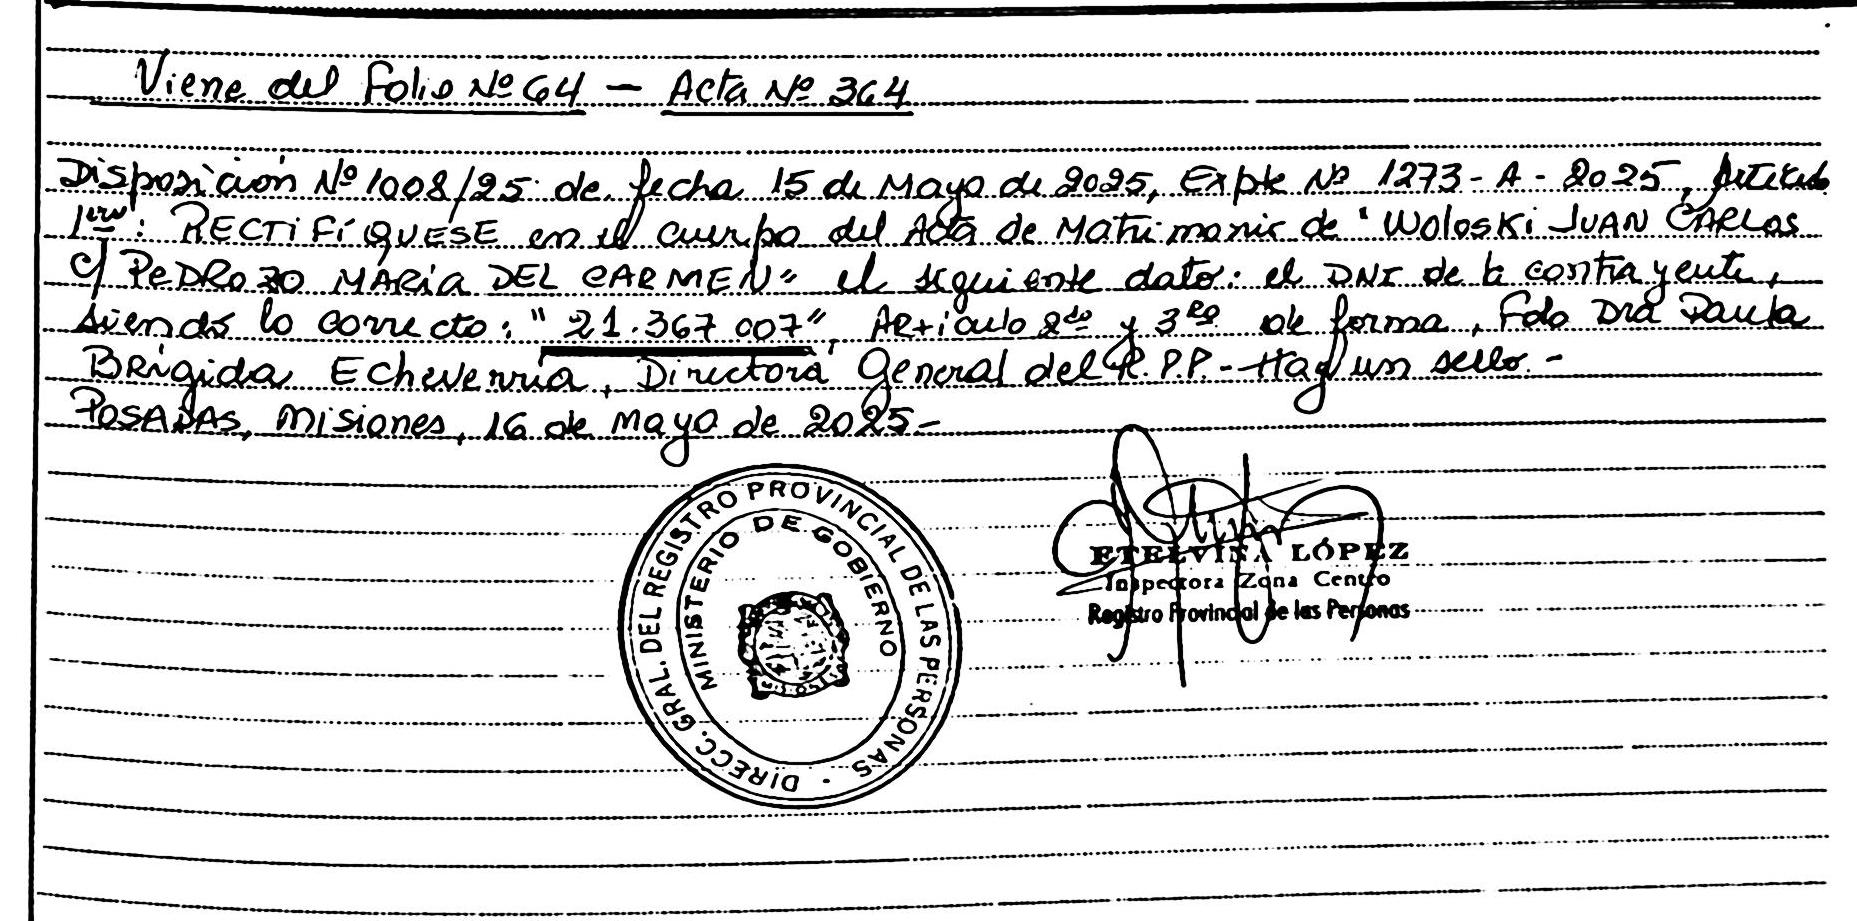 Viene del Folio Nº 64 - Acta Nº 364
Disposición Nº 1008/25 de fecha 15 de Mayo de 2025, Expte Nº 1273-A-2025, Artículo
1ero: RECTIFÍQUESE en el cuerpo del Acta de Matrimonio de "WOLOSKI JUAN CARLOS
c/ PEDROZO MARÍA DEL CARMEN" el siguiente dato: el DNI de la contrayente,
siendo lo correcto: "21.367.007", Artículo 2do y 3ro de forma, Fdo Dra Paula
Brígida Echeverría, Directora General del R.P.P.- Hay un sello.-
POSADAS, Misiones, 16 de mayo de 2025-
DIRECC. GRAL. DEL REGISTRO PROVINCIAL DE LAS PERSONAS
MINISTERIO DE GOBIERNO
ETELVINA LÓPEZ
Inspectora Zona Centro
Registro Provincial de las Personas